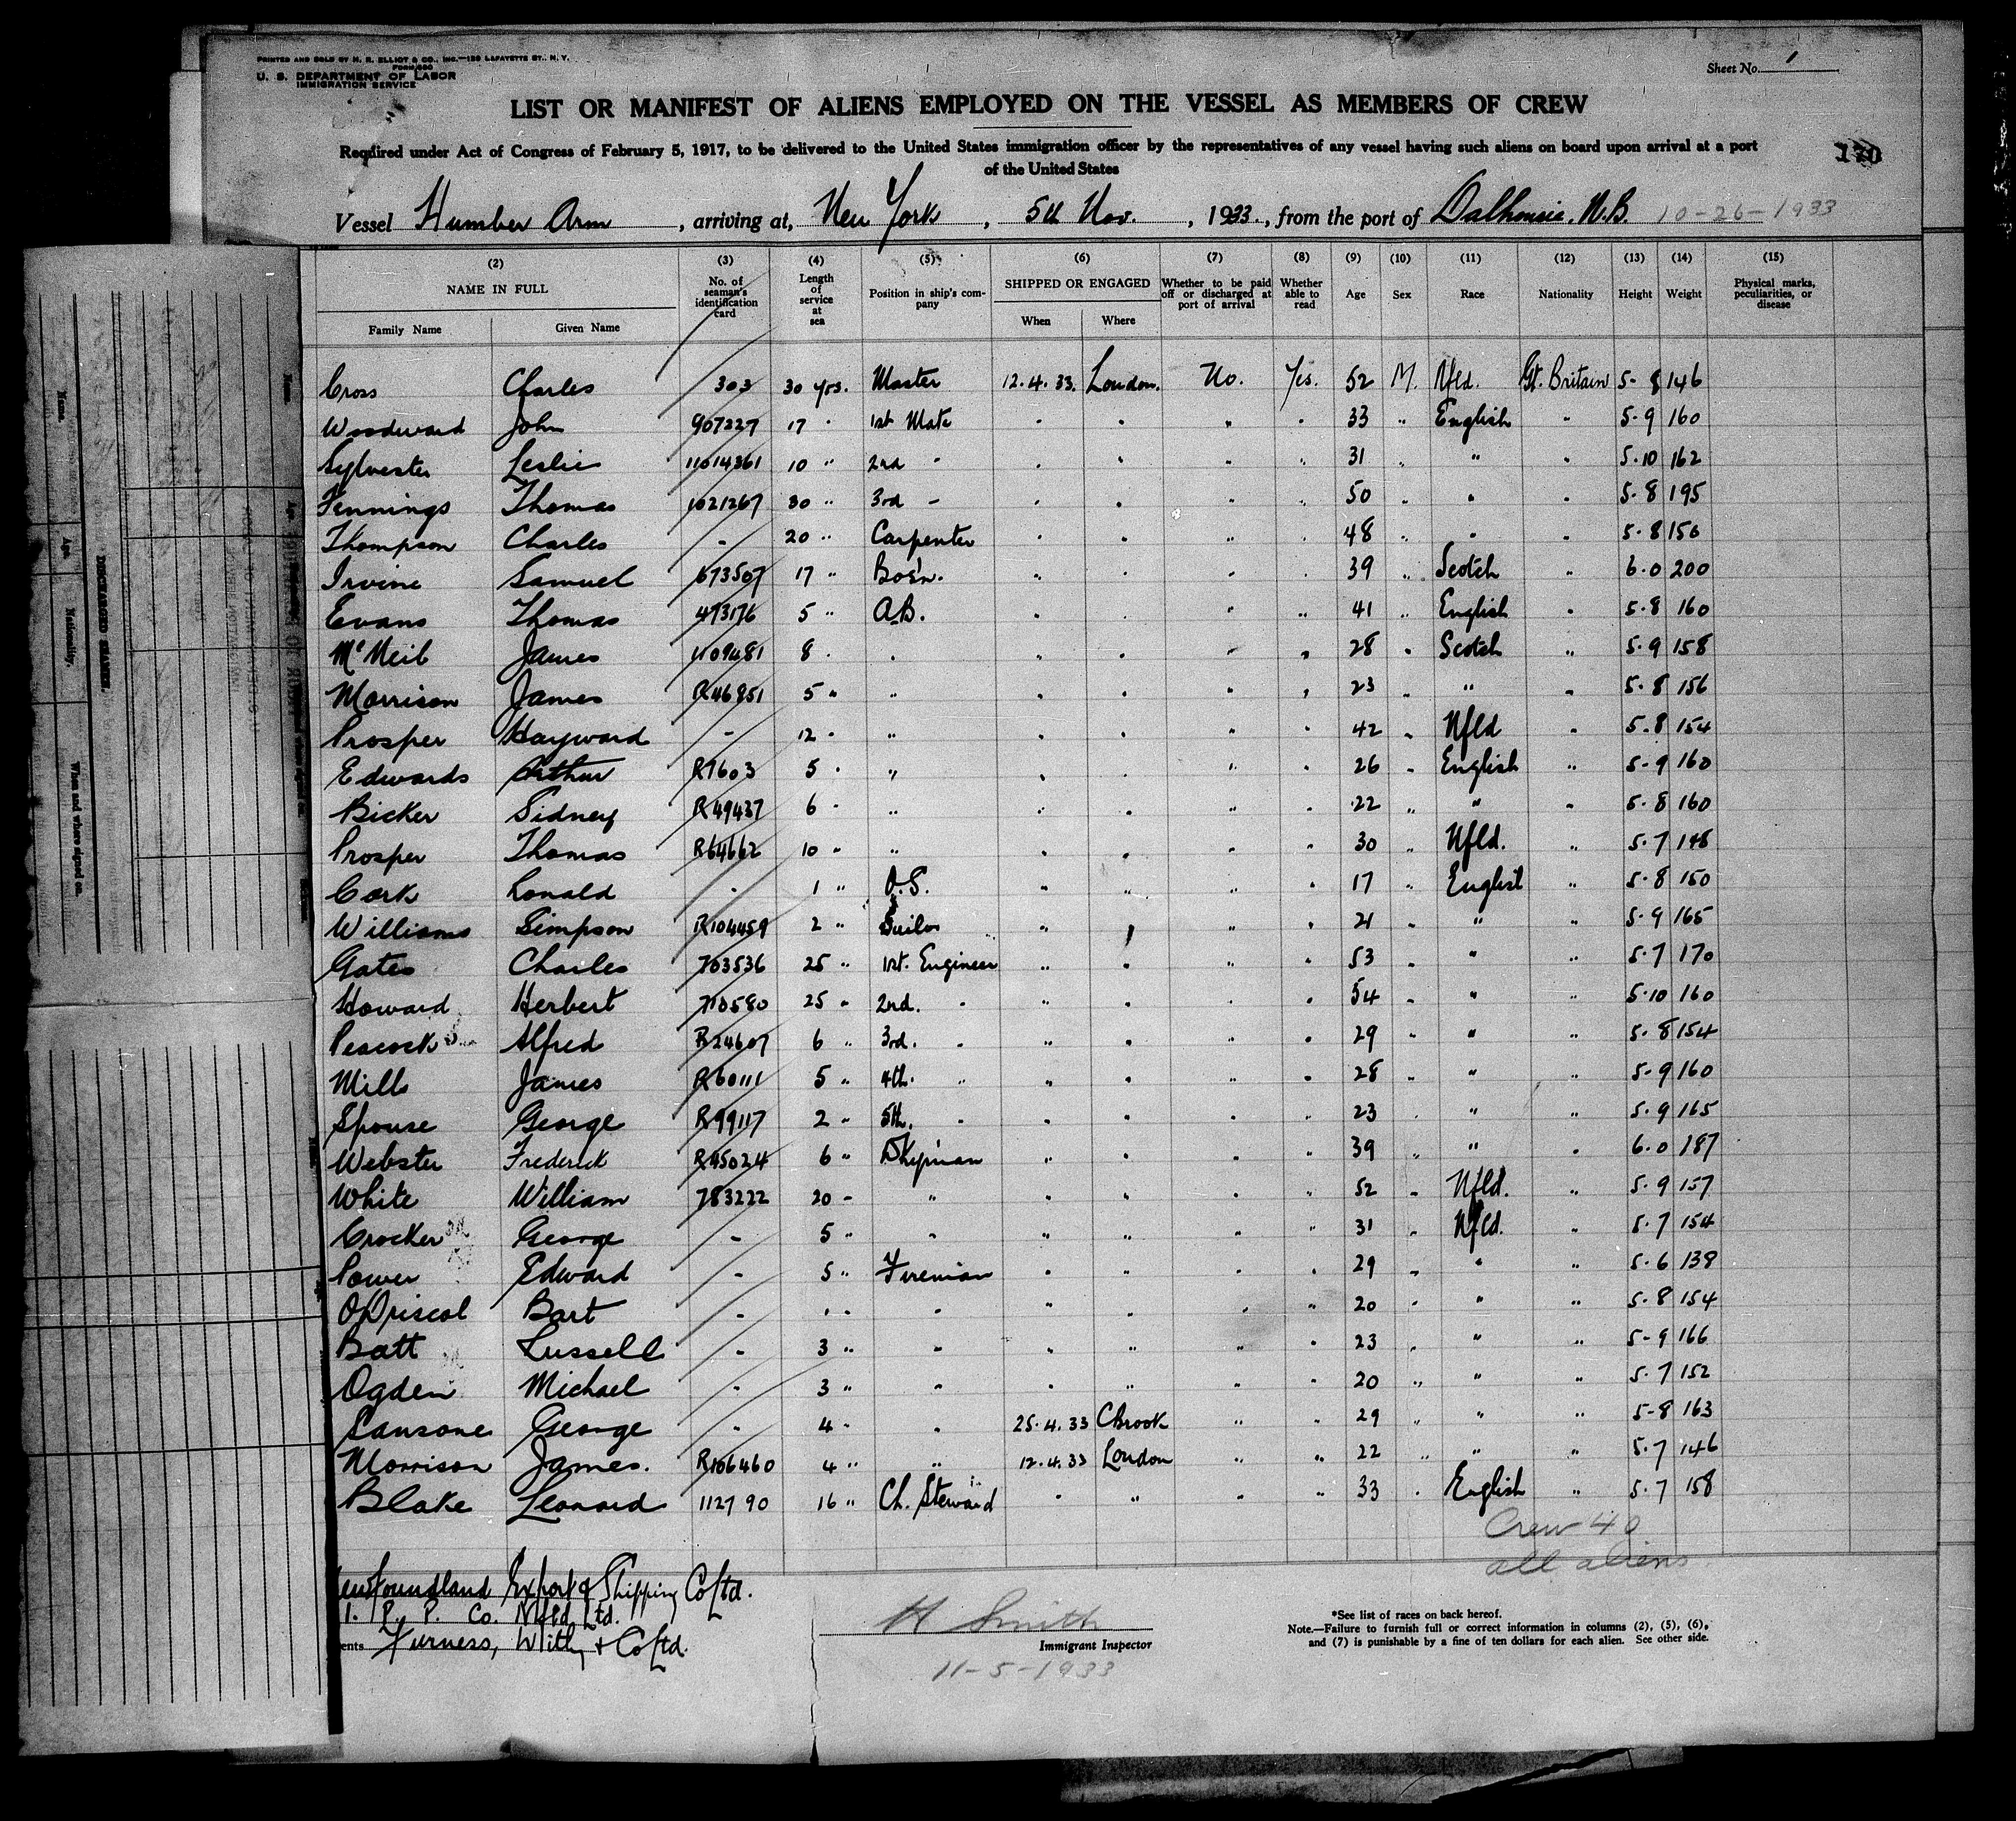 PRINTED AND SOLD BY H. R. ELLIOT & CO., INC.—129 LAFAYETTE ST., N. Y.
FORM 680
U. S. DEPARTMENT OF LABOR
IMMIGRATION SERVICE
Sheet No. 1
LIST OR MANIFEST OF ALIENS EMPLOYED ON THE VESSEL AS MEMBERS OF CREW
Required under Act of Congress of February 5, 1917, to be delivered to the United States immigration officer by the representatives of any vessel having such aliens on board upon arrival at a port
of the United States
170
Vessel Humber Arm, arriving at, New York, 5th Nov., 1933., from the port of Dalhousie, N.B. 10-26-1933
(2) (3) (4) (5) (6) (7) (8) (9) (10) (11) (12) (13) (14) (15)
NAME IN FULL No. of seaman's identification card Length of service at sea Position in ship's company SHIPPED OR ENGAGED Whether to be paid off or discharged at port of arrival Whether able to read Age Sex Race Nationality Height Weight Physical marks, peculiarities, or disease
Family Name Given Name When Where
Cross Charles 303 30 yrs. Master 12.4.33. London. No. Yes. 52 M. Nfld. Gt. Britain 5-8 146
Woodward John 907227 17 " 1st Mate " " " " 33 " English " 5-9 160
Sylvester Leslie 11014361 10 " 2nd " " " " " 31 " " " 5-10 162
Jennings Thomas 1021267 30 " 3rd " " " " " 50 " " " 5-8 195
Thompson Charles - 20 " Carpenter " " " " 48 " " " 5-8 150
Irvine Samuel 673507 17 " Bos'n. " " " " 39 " Scotch " 6-0 200
Evans Thomas 473176 5 " A.B. " " " " 41 " English " 5-8 160
McNeil James 1109481 8 " " " " " " 28 " Scotch " 5-9 158
Morrison James R46851 5 " " " " " " 23 " " " 5-8 156
Prosper Hayward - 12 " " " " " " 42 " Nfld " 5-8 154
Edwards Arthur R7603 5 " " " " " " 26 " English " 5-9 160
Bicker Sidney R49437 6 " " " " " " 22 " " " 5-8 160
Prosper Thomas R64662 10 " " " " " " 30 " Nfld. " 5-7 148
Cork Ronald - 1 " O.S. " " " " 17 " English " 5-8 150
Williams Simpson R104459 2 " " " " " 21 " " " 5-9 165
Gates Charles 703536 25 " 1st. Engineer " " " " 53 " " " 5-7 170
Howard Herbert 710580 25 " 2nd. " " " " " 54 " " " 5-10 160
Peacock Alfred R24607 6 " 3rd. " " " " " 29 " " " 5-8 154
Mills James R60111 5 " 4th. " " " " " 28 " " " 5-9 160
Spouse George R99117 2 " 5th. " " " " " 23 " " " 5-9 165
Webster Frederick R45024 6 " Dkeyman " " " " 39 " " " 6-0 187
White William 783222 20 " " " " " " 52 " Nfld. " 5-9 157
Crocker George - 5 " " " " " " 31 " Nfld. " 5-7 154
Power Edward - 5 " Fireman " " " " 29 " " " 5-6 138
O'Driscol Bart - " " " " " " " 20 " " " 5-8 154
Batt Russell - 3 " " " " " " 23 " " " 5-9 166
Ogden Michael - 3 " " " " " " 20 " " " 5-7 152
Sansone George - 4 " " 25.4.33 CBrook " " 29 " " " 5-8 163
Morrison James. R106460 4 " " 12.4.33 London " " 22 " " " 5-7 146
Blake Leonard 112790 16 " Ch. Steward " " " " 33 " English " 5-7 158
Crew 40
all aliens
ewfoundland Export & Shipping Co Ltd.
I. P. P. Co. Nfld Ltd.
ents Furness, Withy & Co Ltd.
H Smith
Immigrant Inspector
11-5-1933
*See list of races on back hereof.
Note.—Failure to furnish full or correct information in columns (2), (5), (6),
and (7) is punishable by a fine of ten dollars for each alien. See other side.
DISCHARGED SEAMEN.
Name. Age. Nationality. When and where signed on.